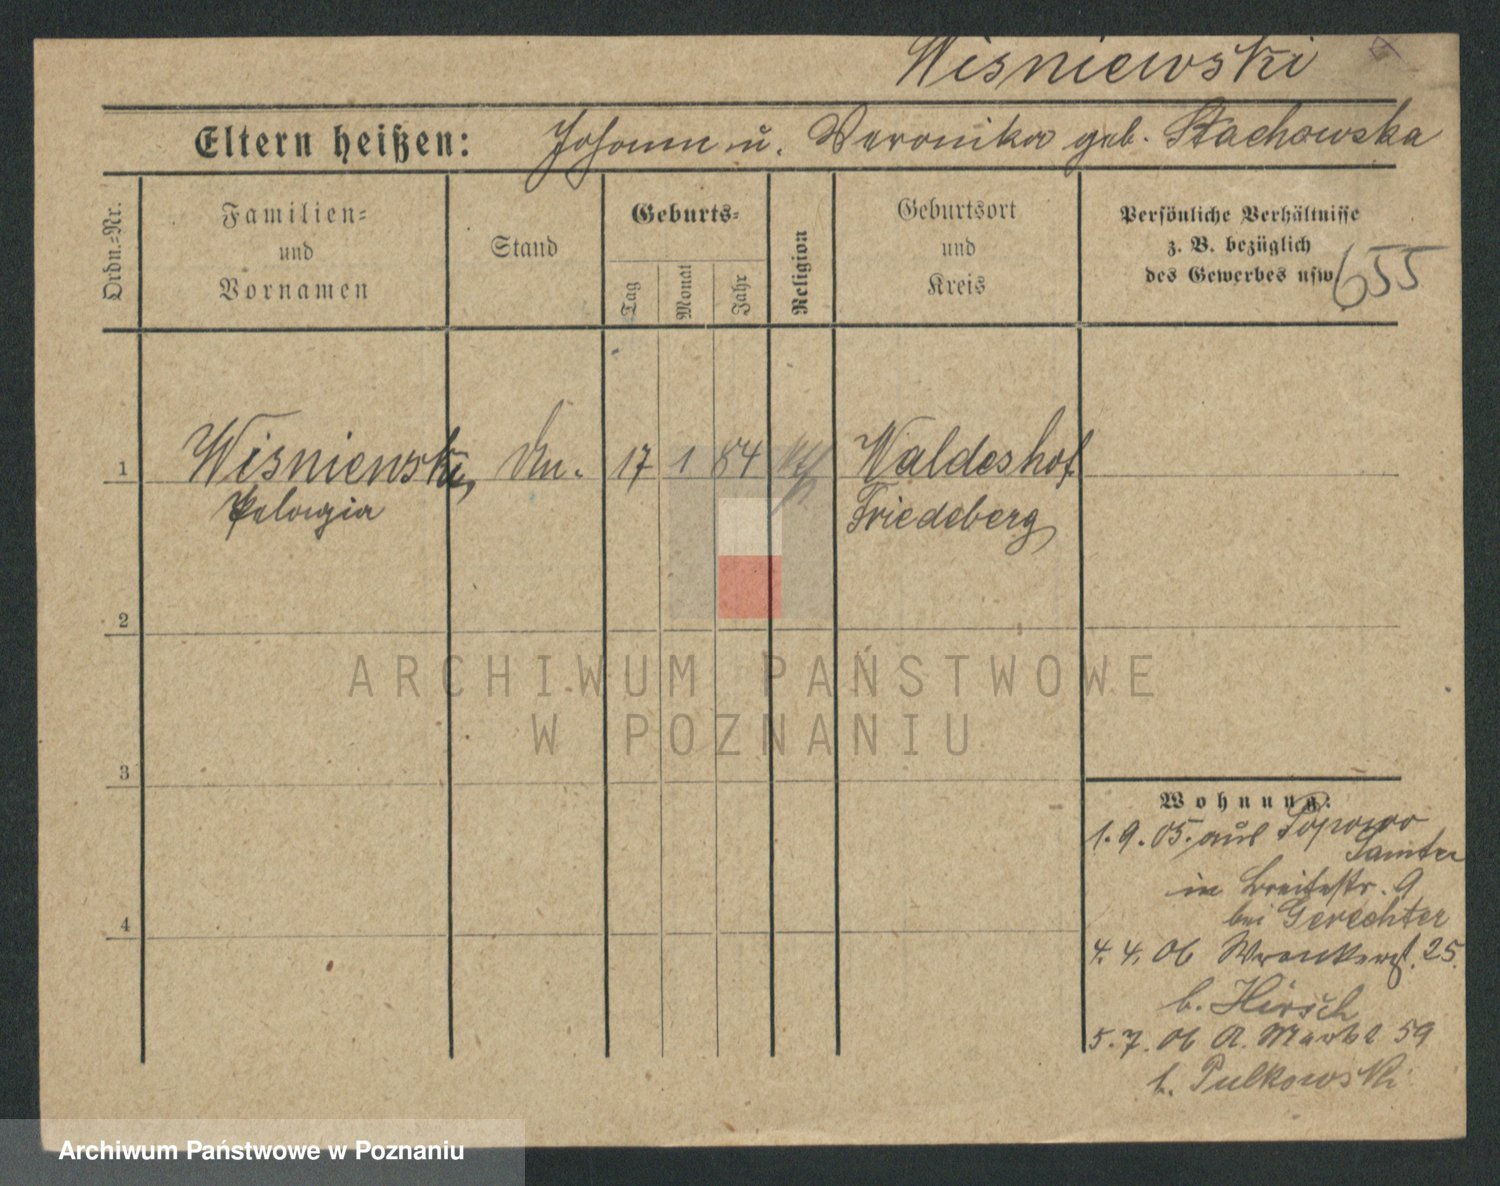 Wisniewski
Eltern heißen: Johann u. Veronika geb. Stachowska
Ordn.-Nr.
Familien-
und
Vornamen
Stand
Geburts-
Tag
Monat
Jahr
Religion
Geburtsort
und
Kreis
Persönliche Verhältnisse
z. B. bezüglich
des Gewerbes usw.
655
1 Wisniewski, 17 1 84 Waldeshof
Pelagia Friedeberg
2
3
4
Wohnung:
1. 9. 05. aus Popowo
Samter
in Breitestr. 9
bei Gerechter
4. 4. 06 Wronkerst. 25.
b. Hirsch
5. 7. 06 A. Markt 59
b. Pulkowski
ARCHIWUM PAŃSTWOWE
W POZNANIU
Archiwum Państwowe w Poznaniu